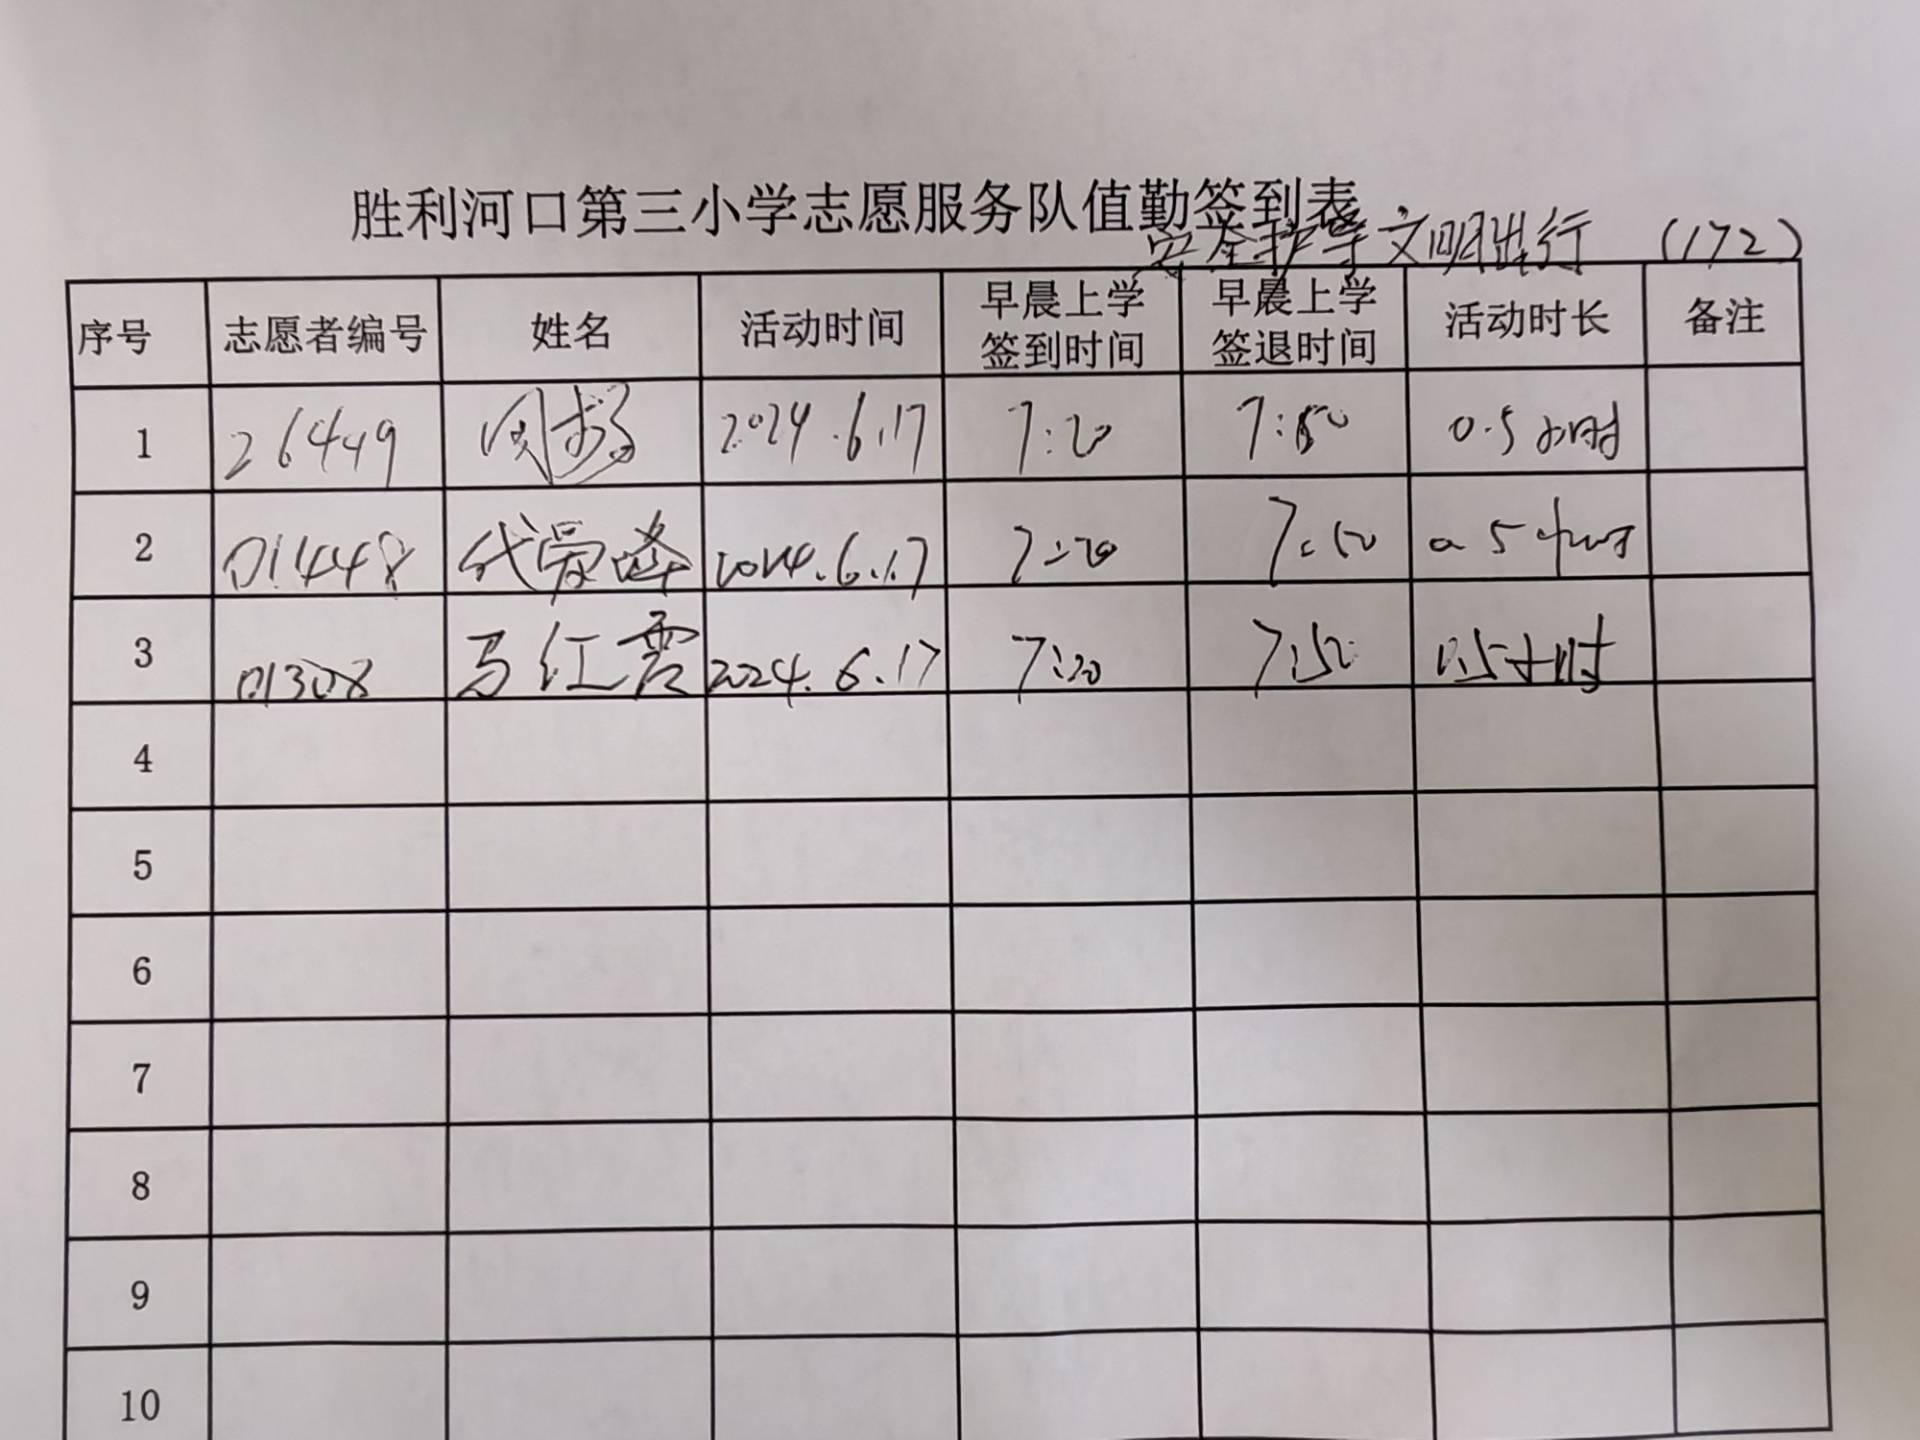 胜利河口第三小学志愿服务队值勤签到表
安全护导文明出行 (172)
序号 志愿者编号 姓名 活动时间 早晨上学签到时间 早晨上学签退时间 活动时长 备注
1 26449 周 2024.6.17 7:20 7:50 0.5小时
2 01448 代爱峰 2024.6.17 7:20 7:50 0.5小时
3 01308 马红霞 2024.6.17 7:20 7:50 0.5小时
4
5
6
7
8
9
10